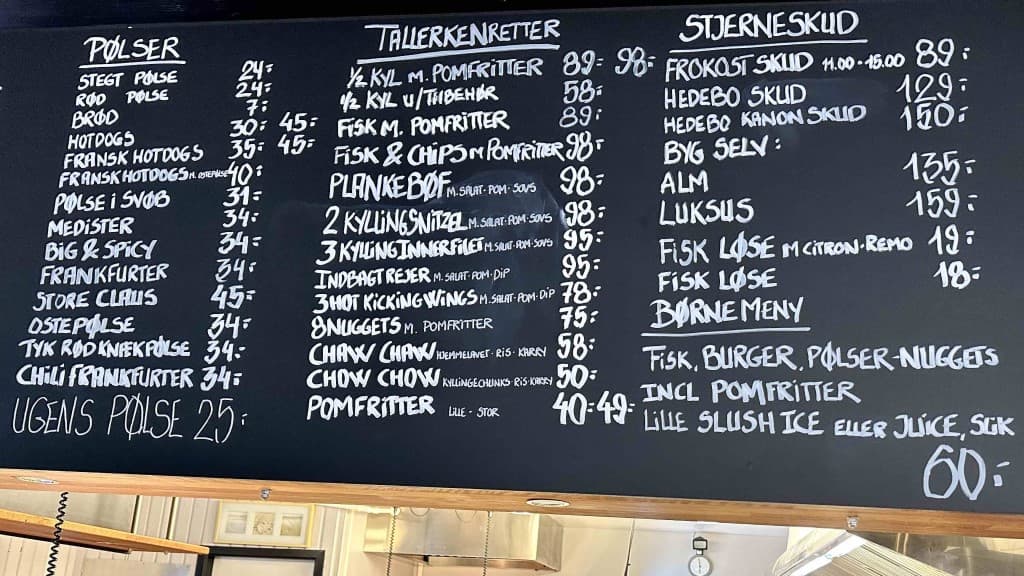 PØLSER
STEGT PØLSE 24,-
RØD PØLSE 24,-
BRØD 7,-
HOTDOGS 30,- 45,-
FRANSK HOTDOGS 35,- 45,-
FRANSK HOTDOGS M. OSTEPØLSE 40,-
PØLSE i SVØB 31,-
MEDISTER 34,-
BIG & SPICY 34,-
FRANKFURTER 34,-
STORE CLAUS 45,-
OSTEPØLSE 34,-
TYK RØD KNÆKPØLSE 34,-
CHiLi FRANKFURTER 34,-
UGENS PØLSE 25,-
TALLERKENRETTER
1/2 KYL M. POMFRITTER 89,- 98,-
1/2 KYL U/TILBEHØR 58,-
FiSK M. POMFRITTER 89,-
FiSK & CHiPS M POMFRITTER 98,-
PLANKEBØF M. SALAT · POM · SOVS 98,-
2 KYLLINGSNITZEL M. SALAT · POM · SOVS 98,-
3 KYLLING INNERFILET M. SALAT · POM · SOVS 95,-
INDBAGT REJER M. SALAT · POM · DIP 95,-
3 HOT KICKING WINGS M. SALAT · POM · DiP 78,-
8 NUGGETS M. POMFRITTER 75,-
CHAW CHAW HJEMMELAVET · RIS · KARRY 58,-
CHOW CHOW KYLLINGECHUNKS · RIS · KARRY 50,-
POMFRiTTER LILLE - STOR 40,- 49,-
STJERNESKUD
FROKOST SKUD 11.00 - 15.00 89,-
HEDEBO SKUD 129,-
HEDEBO KANON SKUD 150,-
BYG SELV :
ALM 135,-
LUKSUS 159,-
FiSK LØSE M CITRON · REMO 19,-
FiSK LØSE 18,-
BØRNE MENY
FiSK, BURGER, PØLSER - NUGGETS
INCL POMFRITTER
LiLLE SLUSH ICE ELLER JUICE, SLIK
60,-